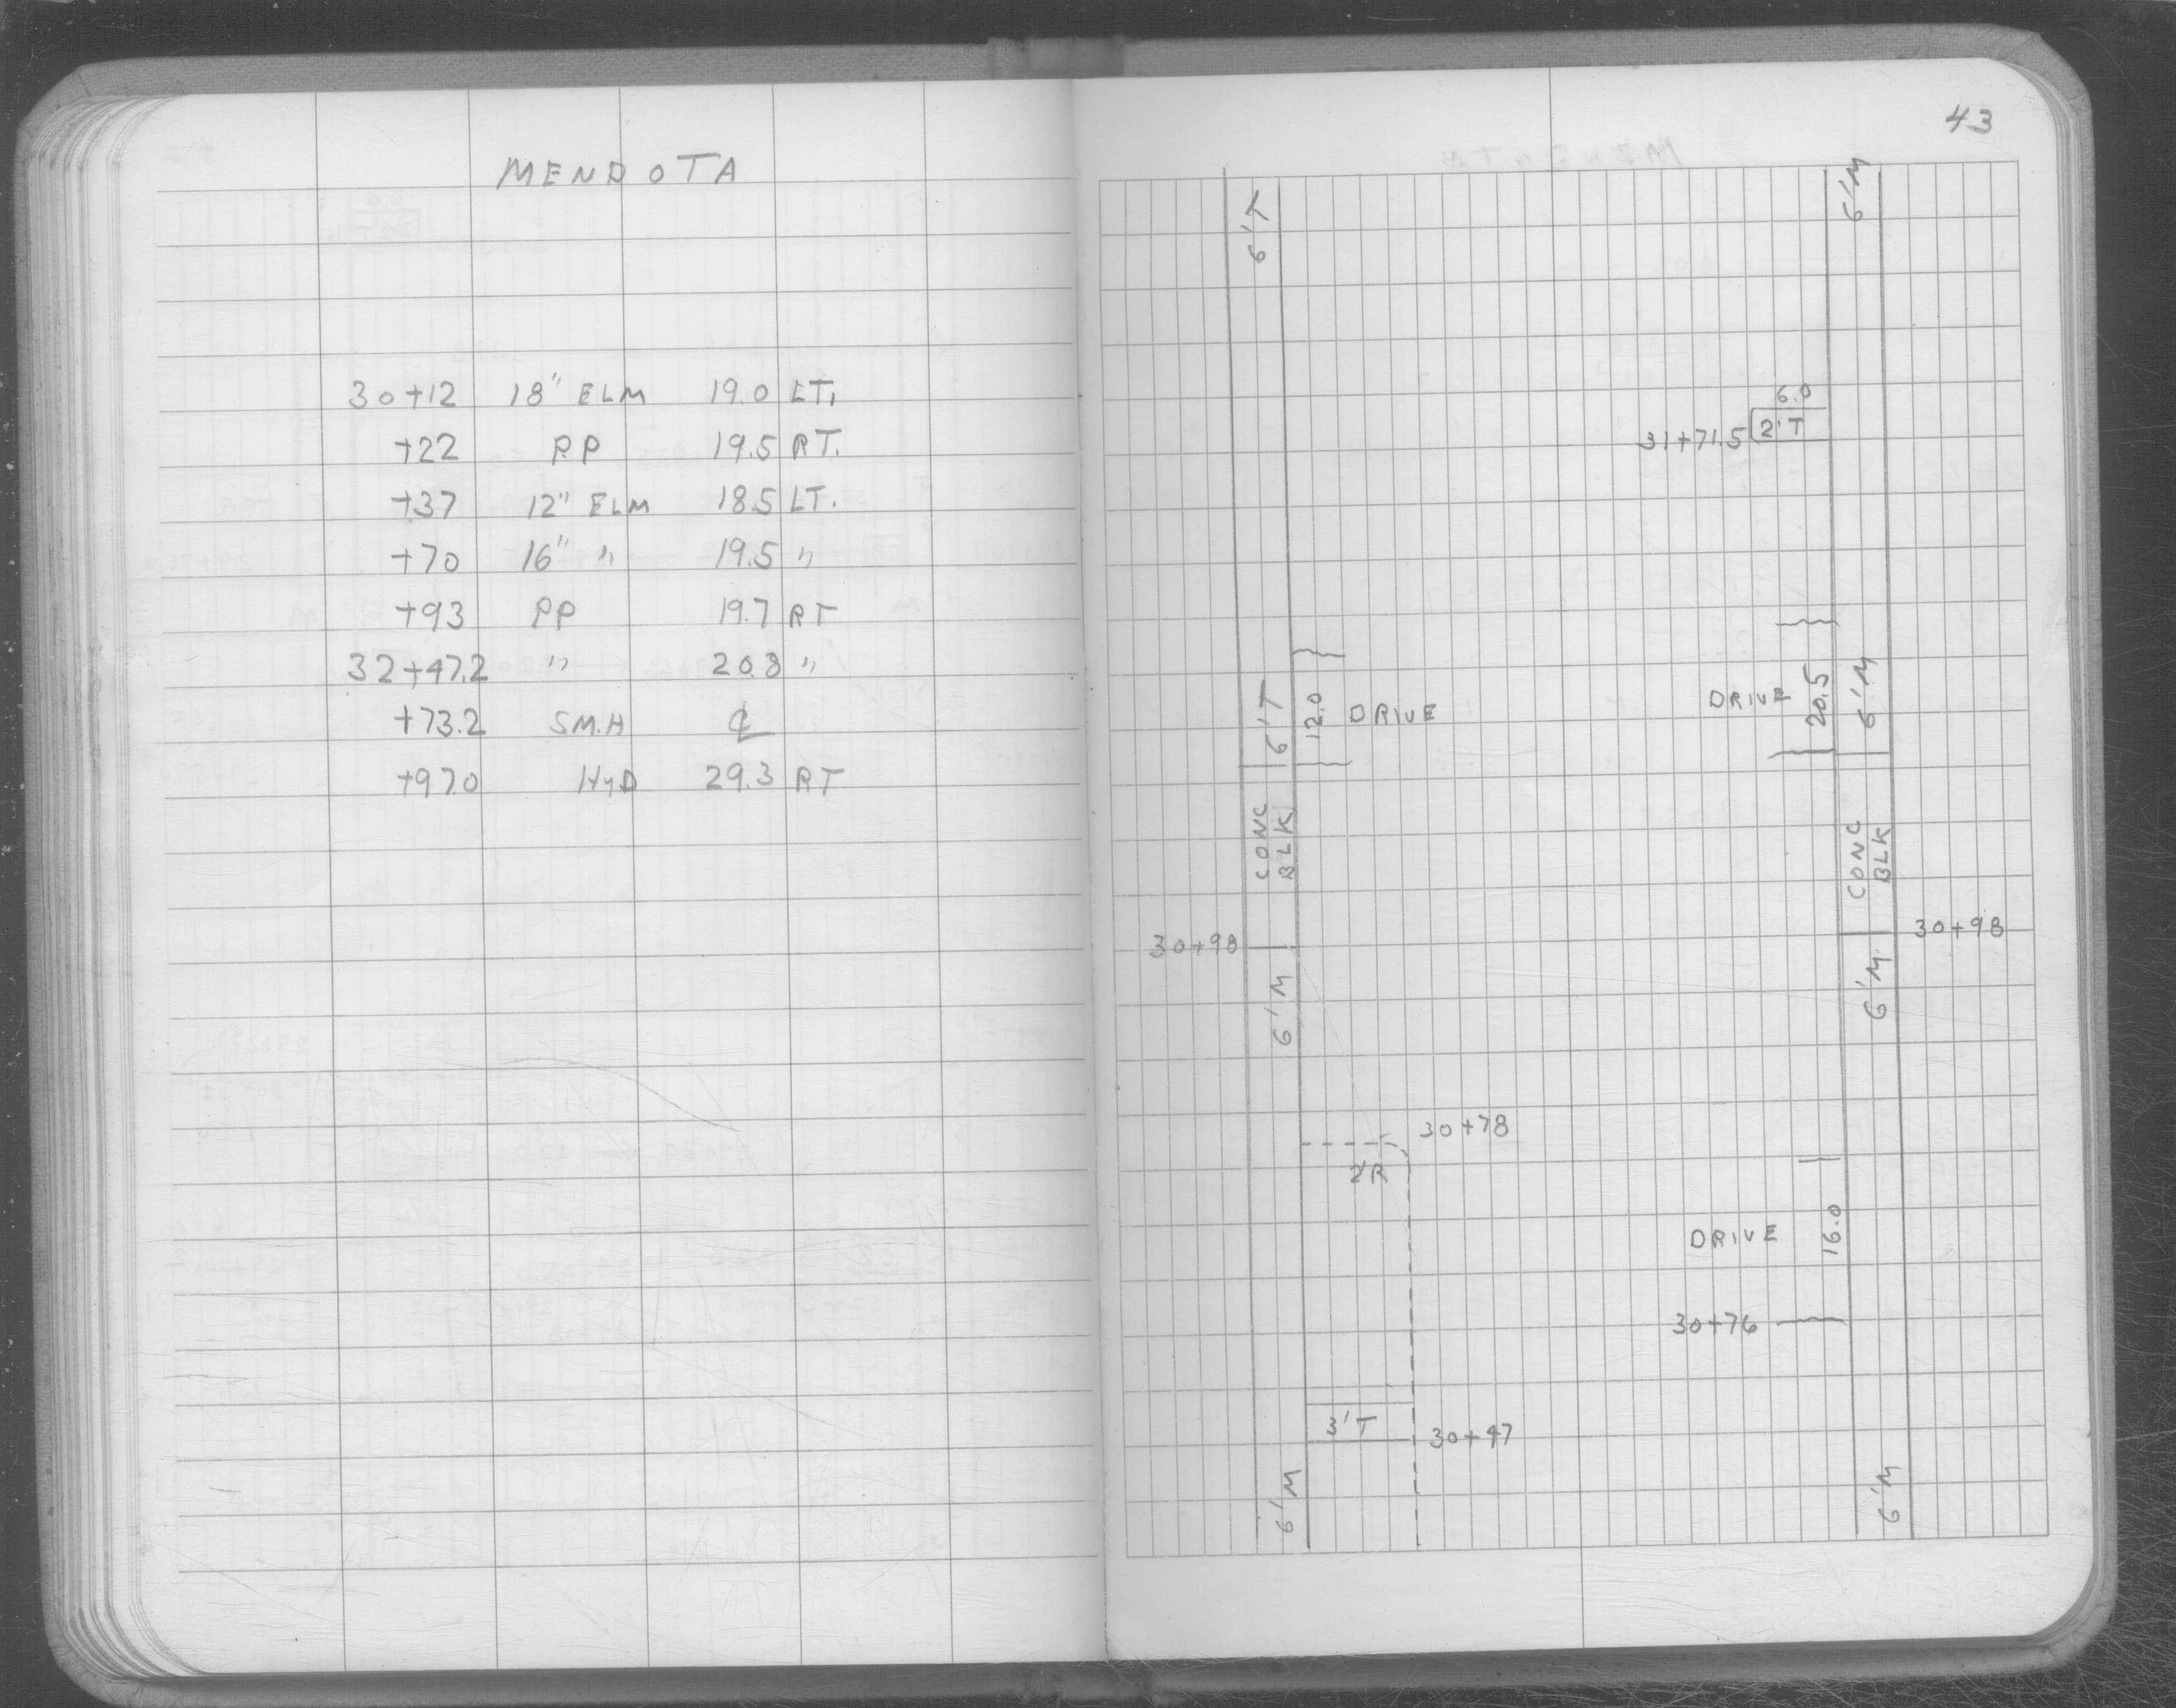 MENDOTA
30+12 18" ELM 19.0 LT.
+22 P.P 19.5 RT.
+37 12" ELM 18.5 LT.
+70 16" " 19.5 "
+93 PP 19.7 RT
32+47.2 " 20.8 "
+73.2 S.M.H ℄
+97.0 HyD 29.3 RT
43
6'T
6'M
6.0
31+71.5 2'T
6'T
12.0 DRIVE
DRIVE 20.5
6'M
CONC
BLK
CONC
BLK
30+98
30+98
6'M
6'M
30+78
2'R
DRIVE 16.0
30+76
3'T
30+47
6'M
6'M